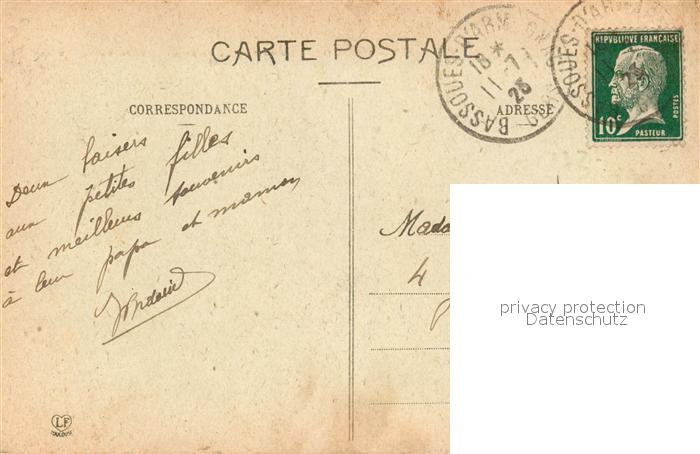 CARTE POSTALE
CORRESPONDANCE
ADRESSE
BASSOUES-D'ARM
18*
11-7
23
BASSOUES-D'ARM
REPVBLIQUE FRANÇAISE
POSTES
10c
PASTEUR
Deux baisers
aux petites filles
et meilleurs souvenirs
à leur papa et maman
Mada
4
privacy protection
Datenschutz
LF